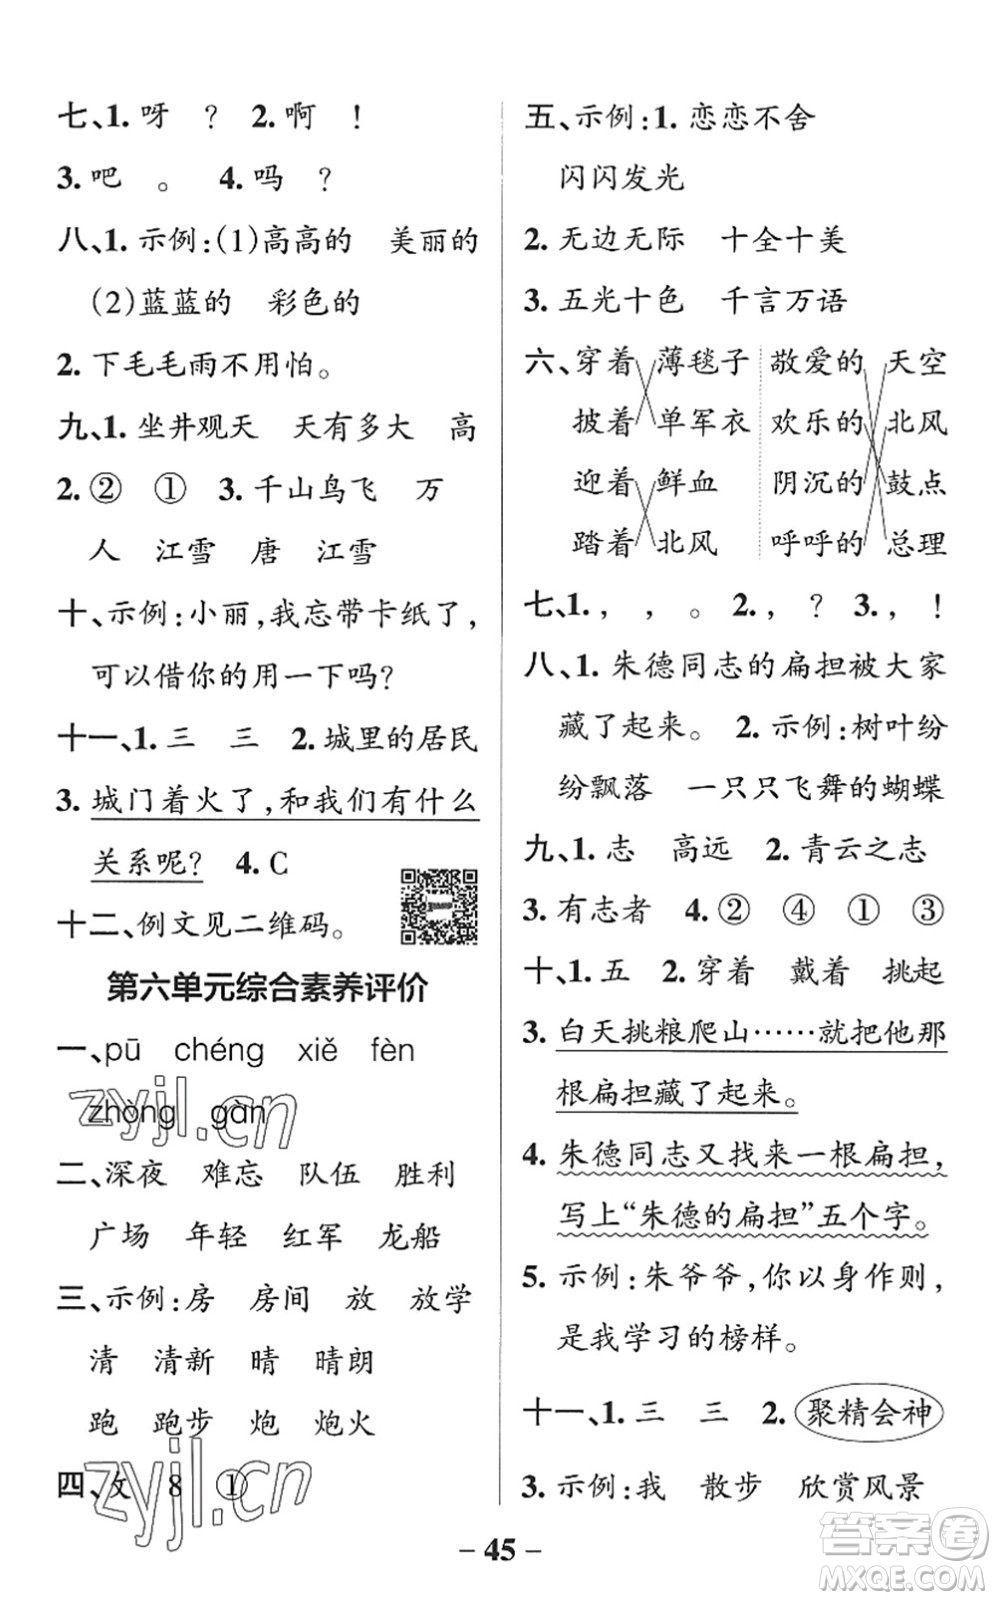 七、1. 呀 ？ 2. 啊 ！
3. 吧 。 4. 吗 ？
八、1. 示例：(1)高高的 美丽的
(2)蓝蓝的 彩色的
2. 下毛毛雨不用怕。
九、1. 坐井观天 天有多大 高
2. ② ① 3. 千山鸟飞 万
人 江雪 唐 江雪
十、示例：小丽，我忘带卡纸了，
可以借你的用一下吗？
十一、1. 三 三 2. 城里的居民
3. 城门着火了，和我们有什么
关系呢？ 4. C
十二、例文见二维码。
第六单元综合素养评价
一、pū chéng xiě fèn
zhòng gàn
二、深夜 难忘 队伍 胜利
广场 年轻 红军 龙船
三、示例：房 房间 放 放学
清 清新 晴 晴朗
跑 跑步 炮 炮火
四、攵 8 ①
五、示例：1. 恋恋不舍
闪闪发光
2. 无边无际 十全十美
3. 五光十色 千言万语
六、穿着 薄毯子 敬爱的 天空
披着 单军衣 欢乐的 北风
迎着 鲜血 阴沉的 鼓点
踏着 北风 呼呼的 总理
七、1. ， ， 。 2. ， ？ 3. ， ！
八、1. 朱德同志的扁担被大家
藏了起来。 2. 示例：树叶纷
纷飘落 一只只飞舞的蝴蝶
九、1. 志 高远 2. 青云之志
3. 有志者 4. ② ④ ① ③
十、1. 五 2. 穿着 戴着 挑起
3. 白天挑粮爬山……就把他那
根扁担藏了起来。
4. 朱德同志又找来一根扁担，
写上“朱德的扁担”五个字。
5. 示例：朱爷爷，你以身作则，
是我学习的榜样。
十一、1. 三 三 2. 聚精会神
3. 示例：我 散步 欣赏风景
– 45 –
zyjl.cn
zyjl.cn
答案圈
MXQE.COM